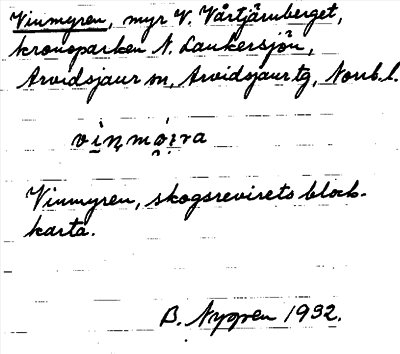 Vinmyren, myr V. Vårtjärnberget,
kronoparken N. Laukersjön,
Arvidsjaur sn, Arvidsjaur tg, Norrb. l.
Vinmyren, skogsrevirets block-
karta.
B. Nygren 1932.